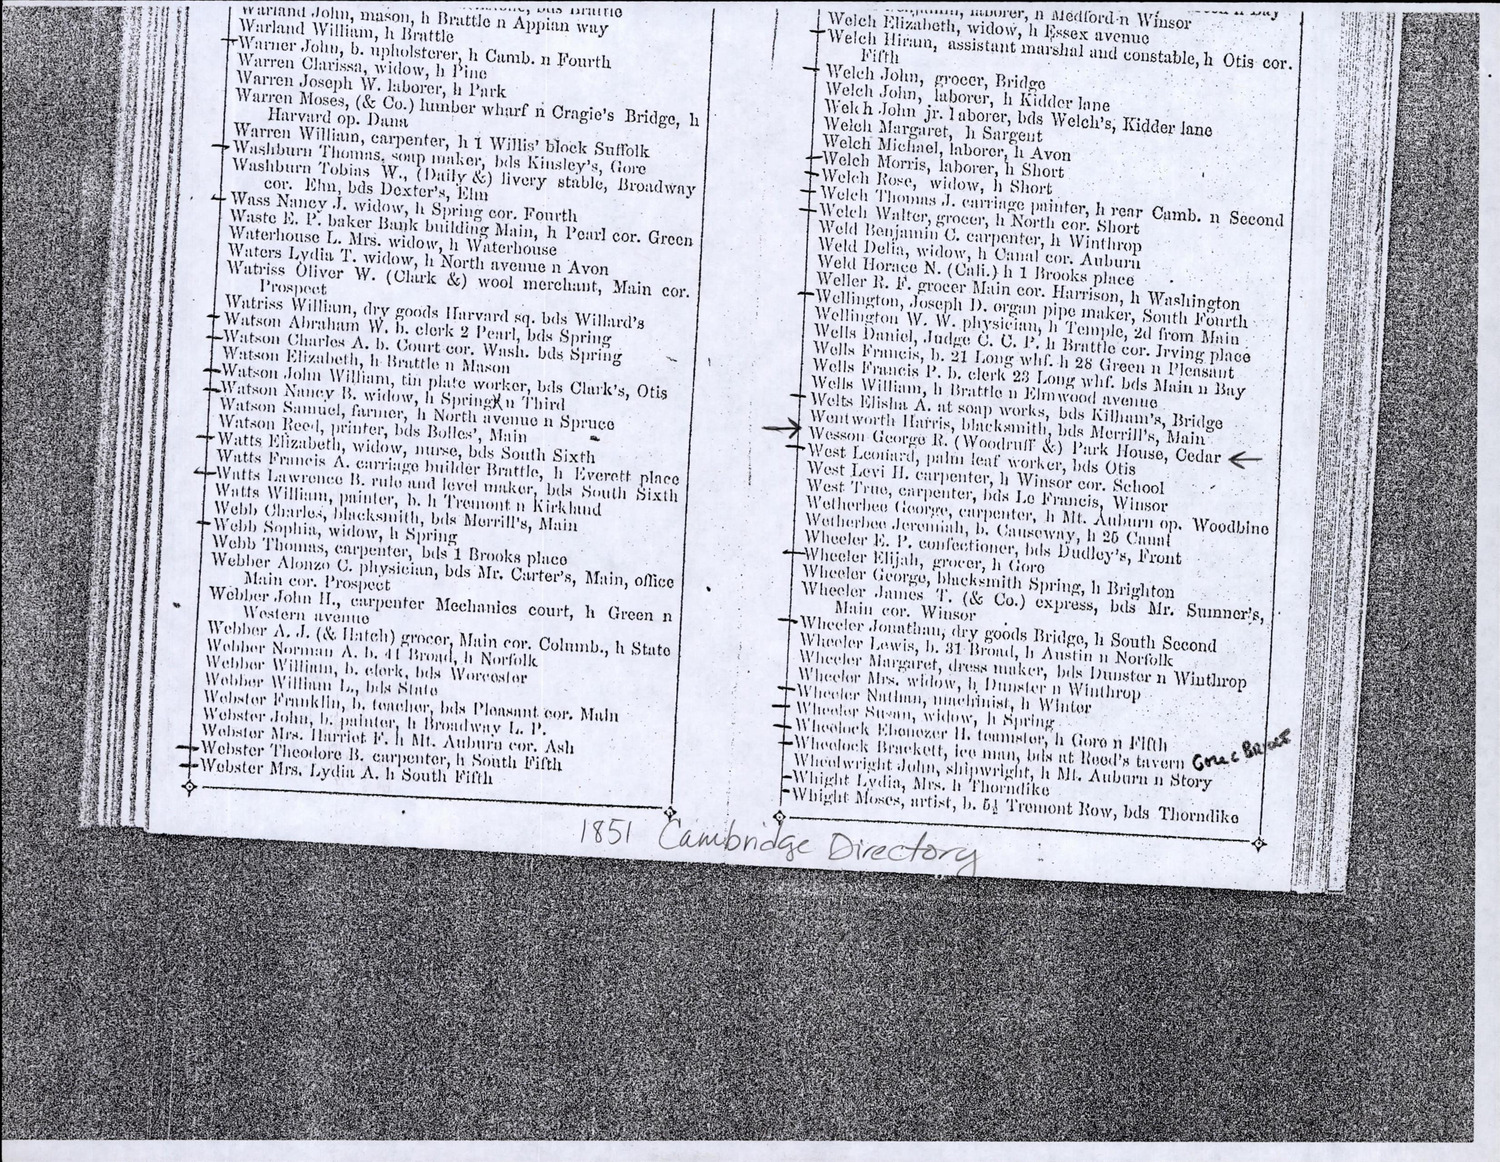 Warland John, mason, h Brattle n Appian way
Warland William, h Brattle
Warner John, b. upholsterer, h Camb. n Fourth
Warren Clarissa, widow, h Pine
Warren Joseph W. laborer, h Park
Warren Moses, (& Co.) lumber wharf n Cragie's Bridge, h
Harvard op. Dana
Warren William, carpenter, h 1 Willis' block Suffolk
Washburn Thomas, soap maker, bds Kinsley's, Gore
Washburn Tobias W., (Daily &) livery stable, Broadway
cor. Elm, bds Dexter's, Elm
Wass Nancy J. widow, h Spring cor. Fourth
Waste E. P. baker Bank building Main, h Pearl cor. Green
Waterhouse L. Mrs. widow, h Waterhouse
Waters Lydia T. widow, h North avenue n Avon
Watriss Oliver W. (Clark &) wool merchant, Main cor.
Prospect
Watriss William, dry goods Harvard sq. bds Willard's
Watson Abraham W. b. clerk 2 Pearl, bds Spring
Watson Charles A. b. Court cor. Wash. bds Spring
Watson Elizabeth, h Brattle n Mason
Watson John William, tin plate worker, bds Clark's, Otis
Watson Nancy B. widow, h Spring n Third
Watson Samuel, farmer, h North avenue n Spruce
Watson Reed, printer, bds Bolles', Main
Watts Elizabeth, widow, nurse, bds South Sixth
Watts Francis A. carriage builder Brattle, h Everett place
Watts Lawrence B. rule and level maker, bds South Sixth
Watts William, painter, b. h Tremont n Kirkland
Webb Charles, blacksmith, bds Merrill's, Main
Webb Sophia, widow, h Spring
Webb Thomas, carpenter, bds 1 Brooks place
Webber Alonzo C. physician, bds Mr. Carter's, Main, office
Main cor. Prospect
Webber John H., carpenter Mechanics court, h Green n
Western avenue
Webber A. J. (& Hatch) grocer, Main cor. Columb., h State
Webber Norman A. b. 41 Broad, h Norfolk
Webber William, b. clerk, bds Worcester
Webber William L., bds State
Webster Franklin, b. teacher, bds Pleasant cor. Main
Webster John, b. painter, h Broadway L. P.
Webster Mrs. Harriet F. h Mt. Auburn cor. Ash
Webster Theodore B. carpenter, h South Fifth
Webster Mrs. Lydia A. h South Fifth
laborer, n Medford n Winsor
Welch Elizabeth, widow, h Essex avenue
Welch Hiram, assistant marshal and constable, h Otis cor.
Fifth
Welch John, grocer, Bridge
Welch John, laborer, h Kidder lane
Welch John jr. laborer, bds Welch's, Kidder lane
Welch Margaret, h Sargent
Welch Michael, laborer, h Avon
Welch Morris, laborer, h Short
Welch Rose, widow, h Short
Welch Thomas J. carriage painter, h rear Camb. n Second
Welch Walter, grocer, h North cor. Short
Weld Benjamin C. carpenter, h Winthrop
Weld Delia, widow, h Canal cor. Auburn
Weld Horace N. (Cali.) h 1 Brooks place
Weller R. F. grocer Main cor. Harrison, h Washington
Wellington, Joseph D. organ pipe maker, South Fourth
Wellington W. W. physician, h Temple, 2d from Main
Wells Daniel, Judge C. C. P. h Brattle cor. Irving place
Wells Francis, b. 21 Long whf. h 28 Green n Pleasant
Wells Francis P. b. clerk 23 Long whf. bds Main n Bay
Wells William, h Brattle n Elmwood avenue
Welts Elisha A. at soap works, bds Kilham's, Bridge
Wentworth Harris, blacksmith, bds Merrill's, Main
Wesson George R. (Woodruff &) Park House, Cedar
West Leonard, palm leaf worker, bds Otis
West Levi H. carpenter, h Winsor cor. School
West True, carpenter, bds Le Francis, Winsor
Wetherbee George, carpenter, h Mt. Auburn op. Woodbine
Wetherbee Jeremiah, b. Causeway, h 25 Canal
Wheeler E. P. confectioner, bds Dudley's, Front
Wheeler Elijah, grocer, h Gore
Wheeler George, blacksmith Spring, h Brighton
Wheeler James T. (& Co.) express, bds Mr. Sumner's,
Main cor. Winsor
Wheeler Jonathan, dry goods Bridge, h South Second
Wheeler Lewis, b. 31 Broad, h Austin n Norfolk
Wheeler Margaret, dress maker, bds Dunster n Winthrop
Wheeler Mrs. widow, h Dunster n Winthrop
Wheeler Nathan, machinist, h Winter
Wheeler Susan, widow, h Spring
Wheelock Ebenezer H. teamster, h Gore n Fifth
Wheelock Brackett, ice man, bds at Reed's tavern Gore c Bridge
Wheelwright John, shipwright, h Mt. Auburn n Story
Whight Lydia, Mrs. h Thorndike
Whight Moses, artist, b. 5½ Tremont Row, bds Thorndike
1851 Cambridge Directory